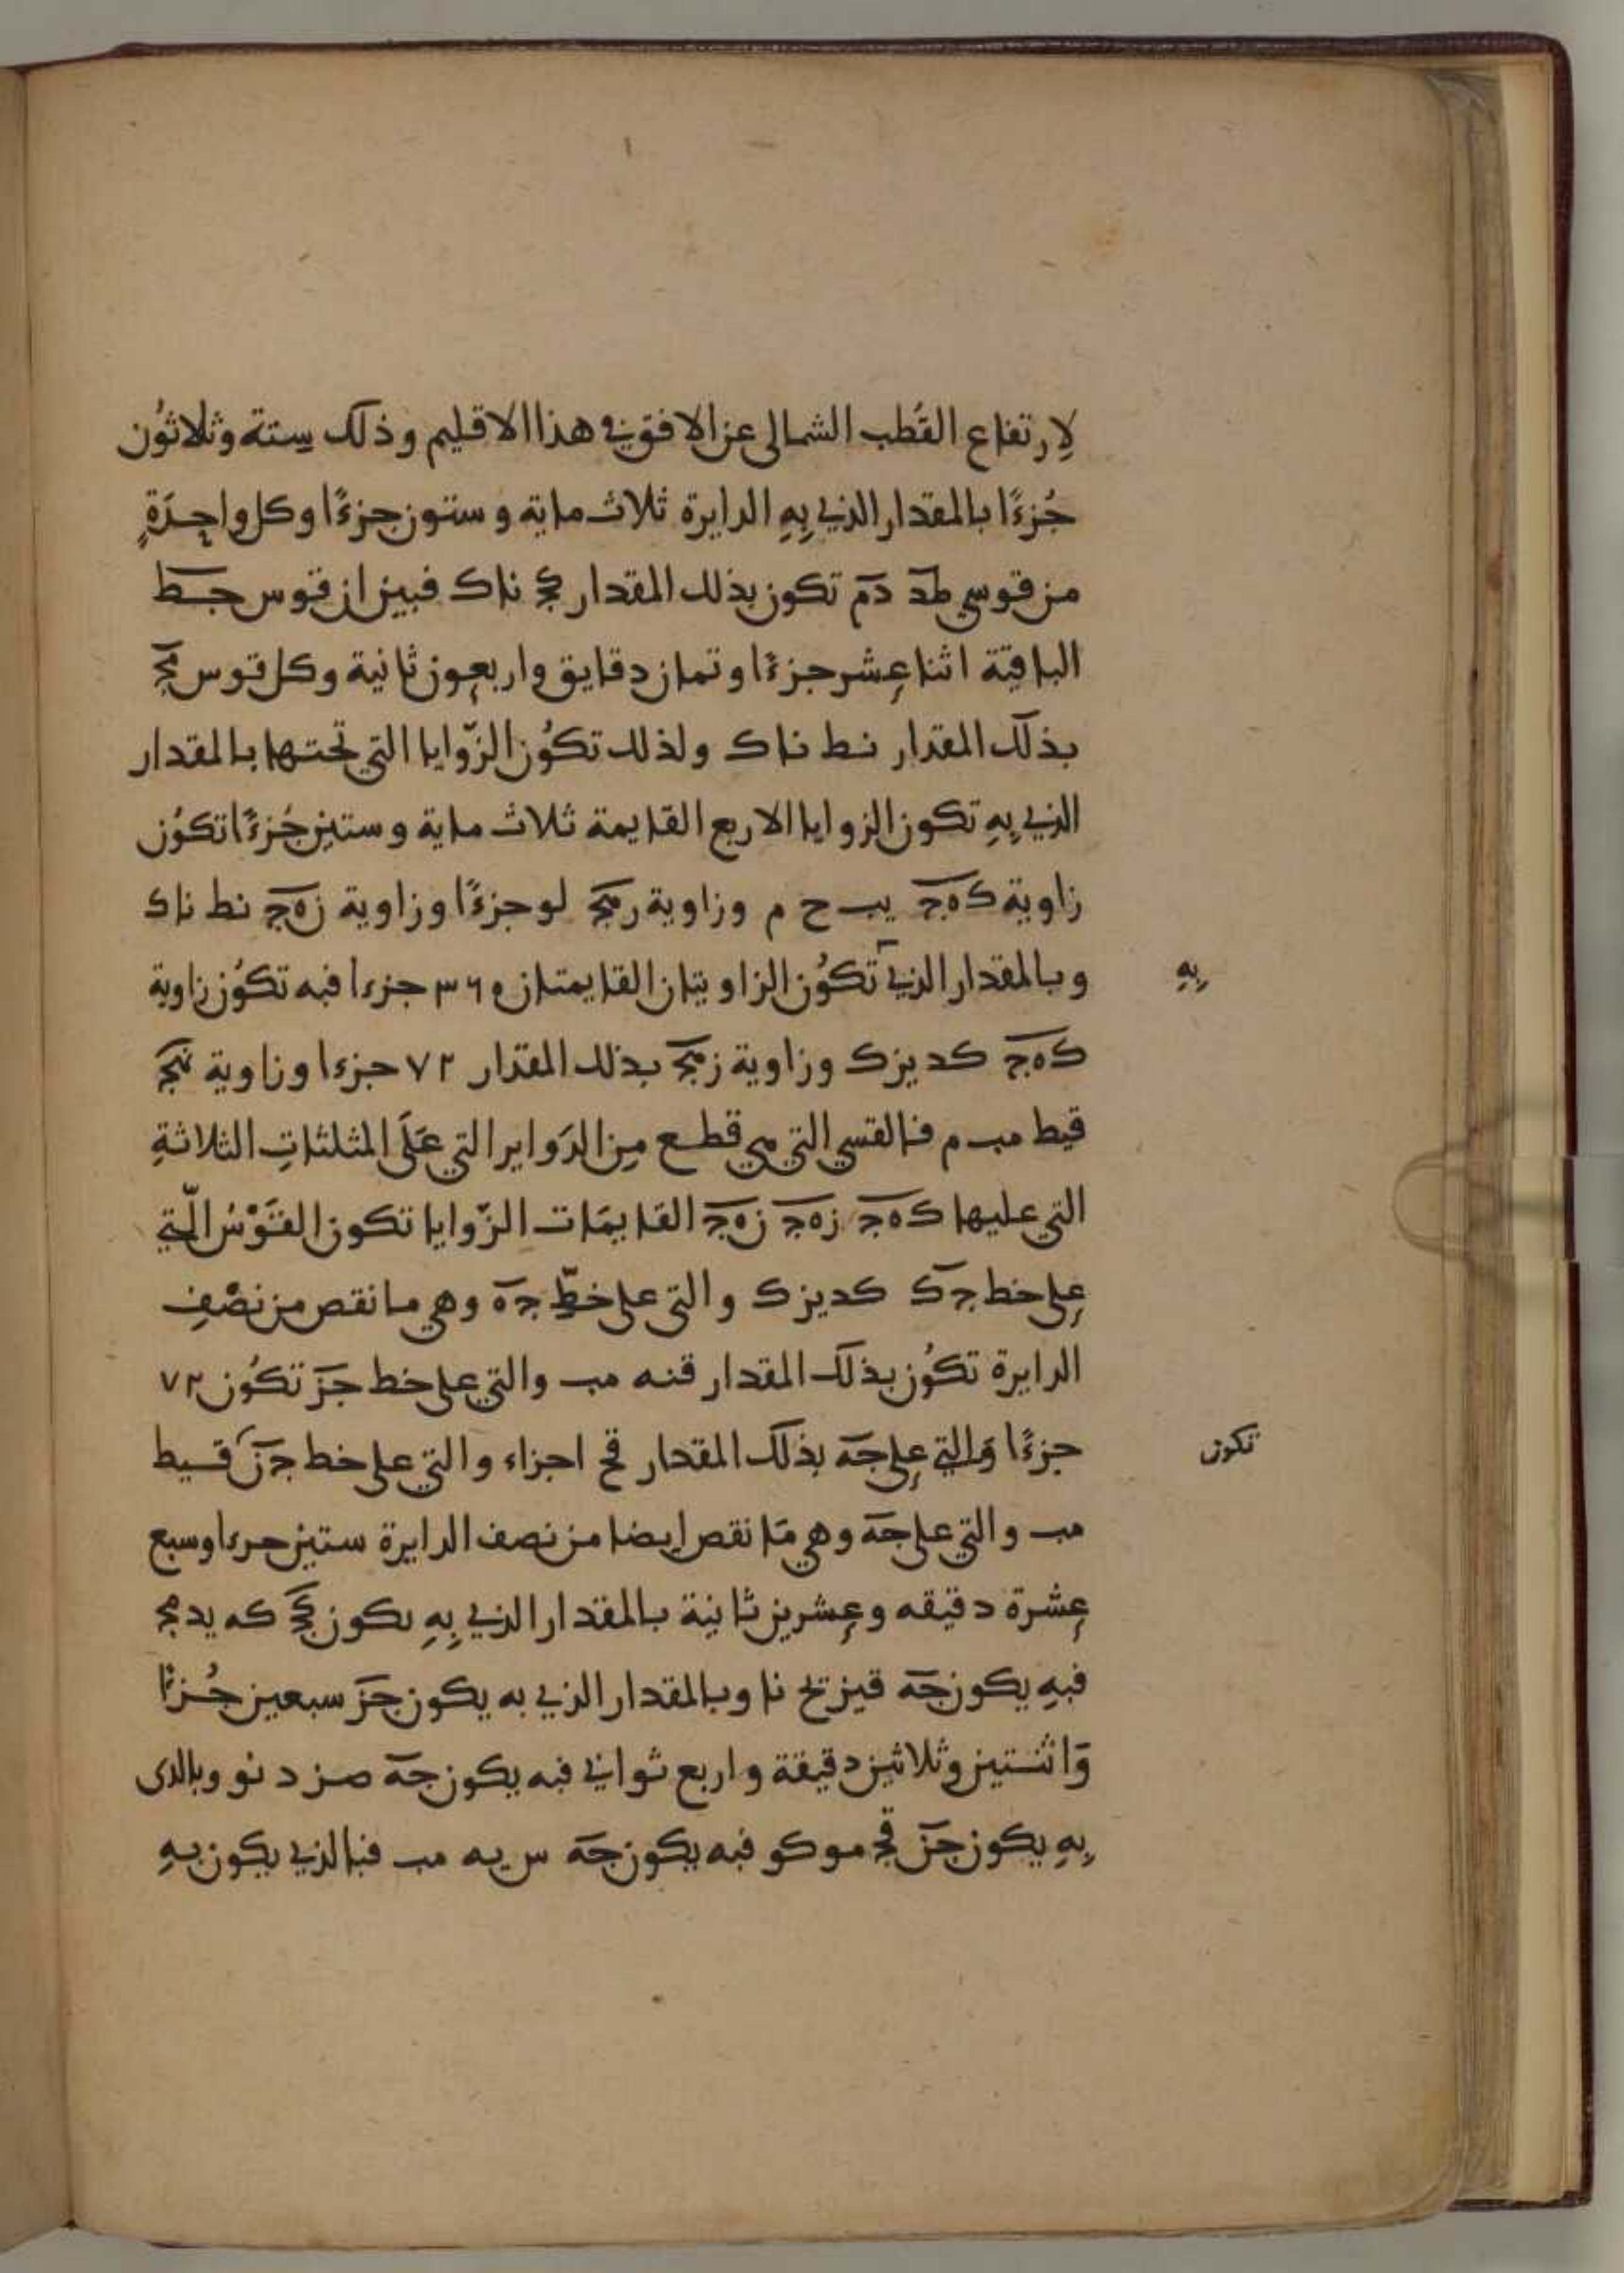 لِارتفاع القُطب الشمالى عن الافق في هذا الاقليم وذلك ستة وثلاثُون
جُزءًا بالمقدار الذي بِهِ الدايرة ثلاث ماية وستون جزءًا وكل واحِدَةٍ
من قوسي طد دم تكون بذلك المقدار كج نا ك فبين ان قوس جط
الباقية اثنا عشر جزءًا وثمان دقايق واربعون ثانية وكل قوس مج
بذلك المقدار نط نا ك ولذلك تكوُن الزّوايا التي تحتها بالمقدار
الذي بِهِ تكون الزوايا الاربع القايمة ثلاث ماية وستين جُزءًا تكوُن
زاوية كهج يب ح م وزاوية رمج لو جزءًا وزاوية زهج نط نا ك
وبالمقدار الذي تكوُن الزاويتان القايمتان ٣٦٠ جزءا فبه تكوُن زاوية
بِهِ
كهج كد يز ك وزاوية زمج بذلك المقدار ٧٢ جزءا وزاوية نمج
قيط مب م فالقسي التي هي قطع مِن الدَواير التي عَلَى المثلثاتِ الثلاثةِ
التي عليها كهج زهج زهج القايمَات الزّوايا تكون القَوْسُ الّتي
على خط جك كد يز ك والتي على خطّ جه وهي ما نقص من نصْفِ
الدايرة تكُون بذلك المقدار قنه مب والتي على خط جز تكوُن ٧٢
جزءًا وَالتي على جه بذلك المقدار قح اجزاء والتي على خط جز قيط
تكون
مب والتي على جه وهي مَا نقص ايضا من نصف الدايرة ستين جزءا وسبع
عشرة دقيقه وعشرين ثانية بالمقدار الذي بِهِ يكون جك كه يد مج
فبهِ يكون جه قيز يح نا وبالمقدار الذي به يكون جز سبعين جُزءًا
وَاثنتين وثلاثين دقيقة واربع ثواني فبه يكون جه صز د نو وبالذى
بِهِ يكون جز قج مو كو فبه يكون جه س يه مب فبالذي يكون بهِ